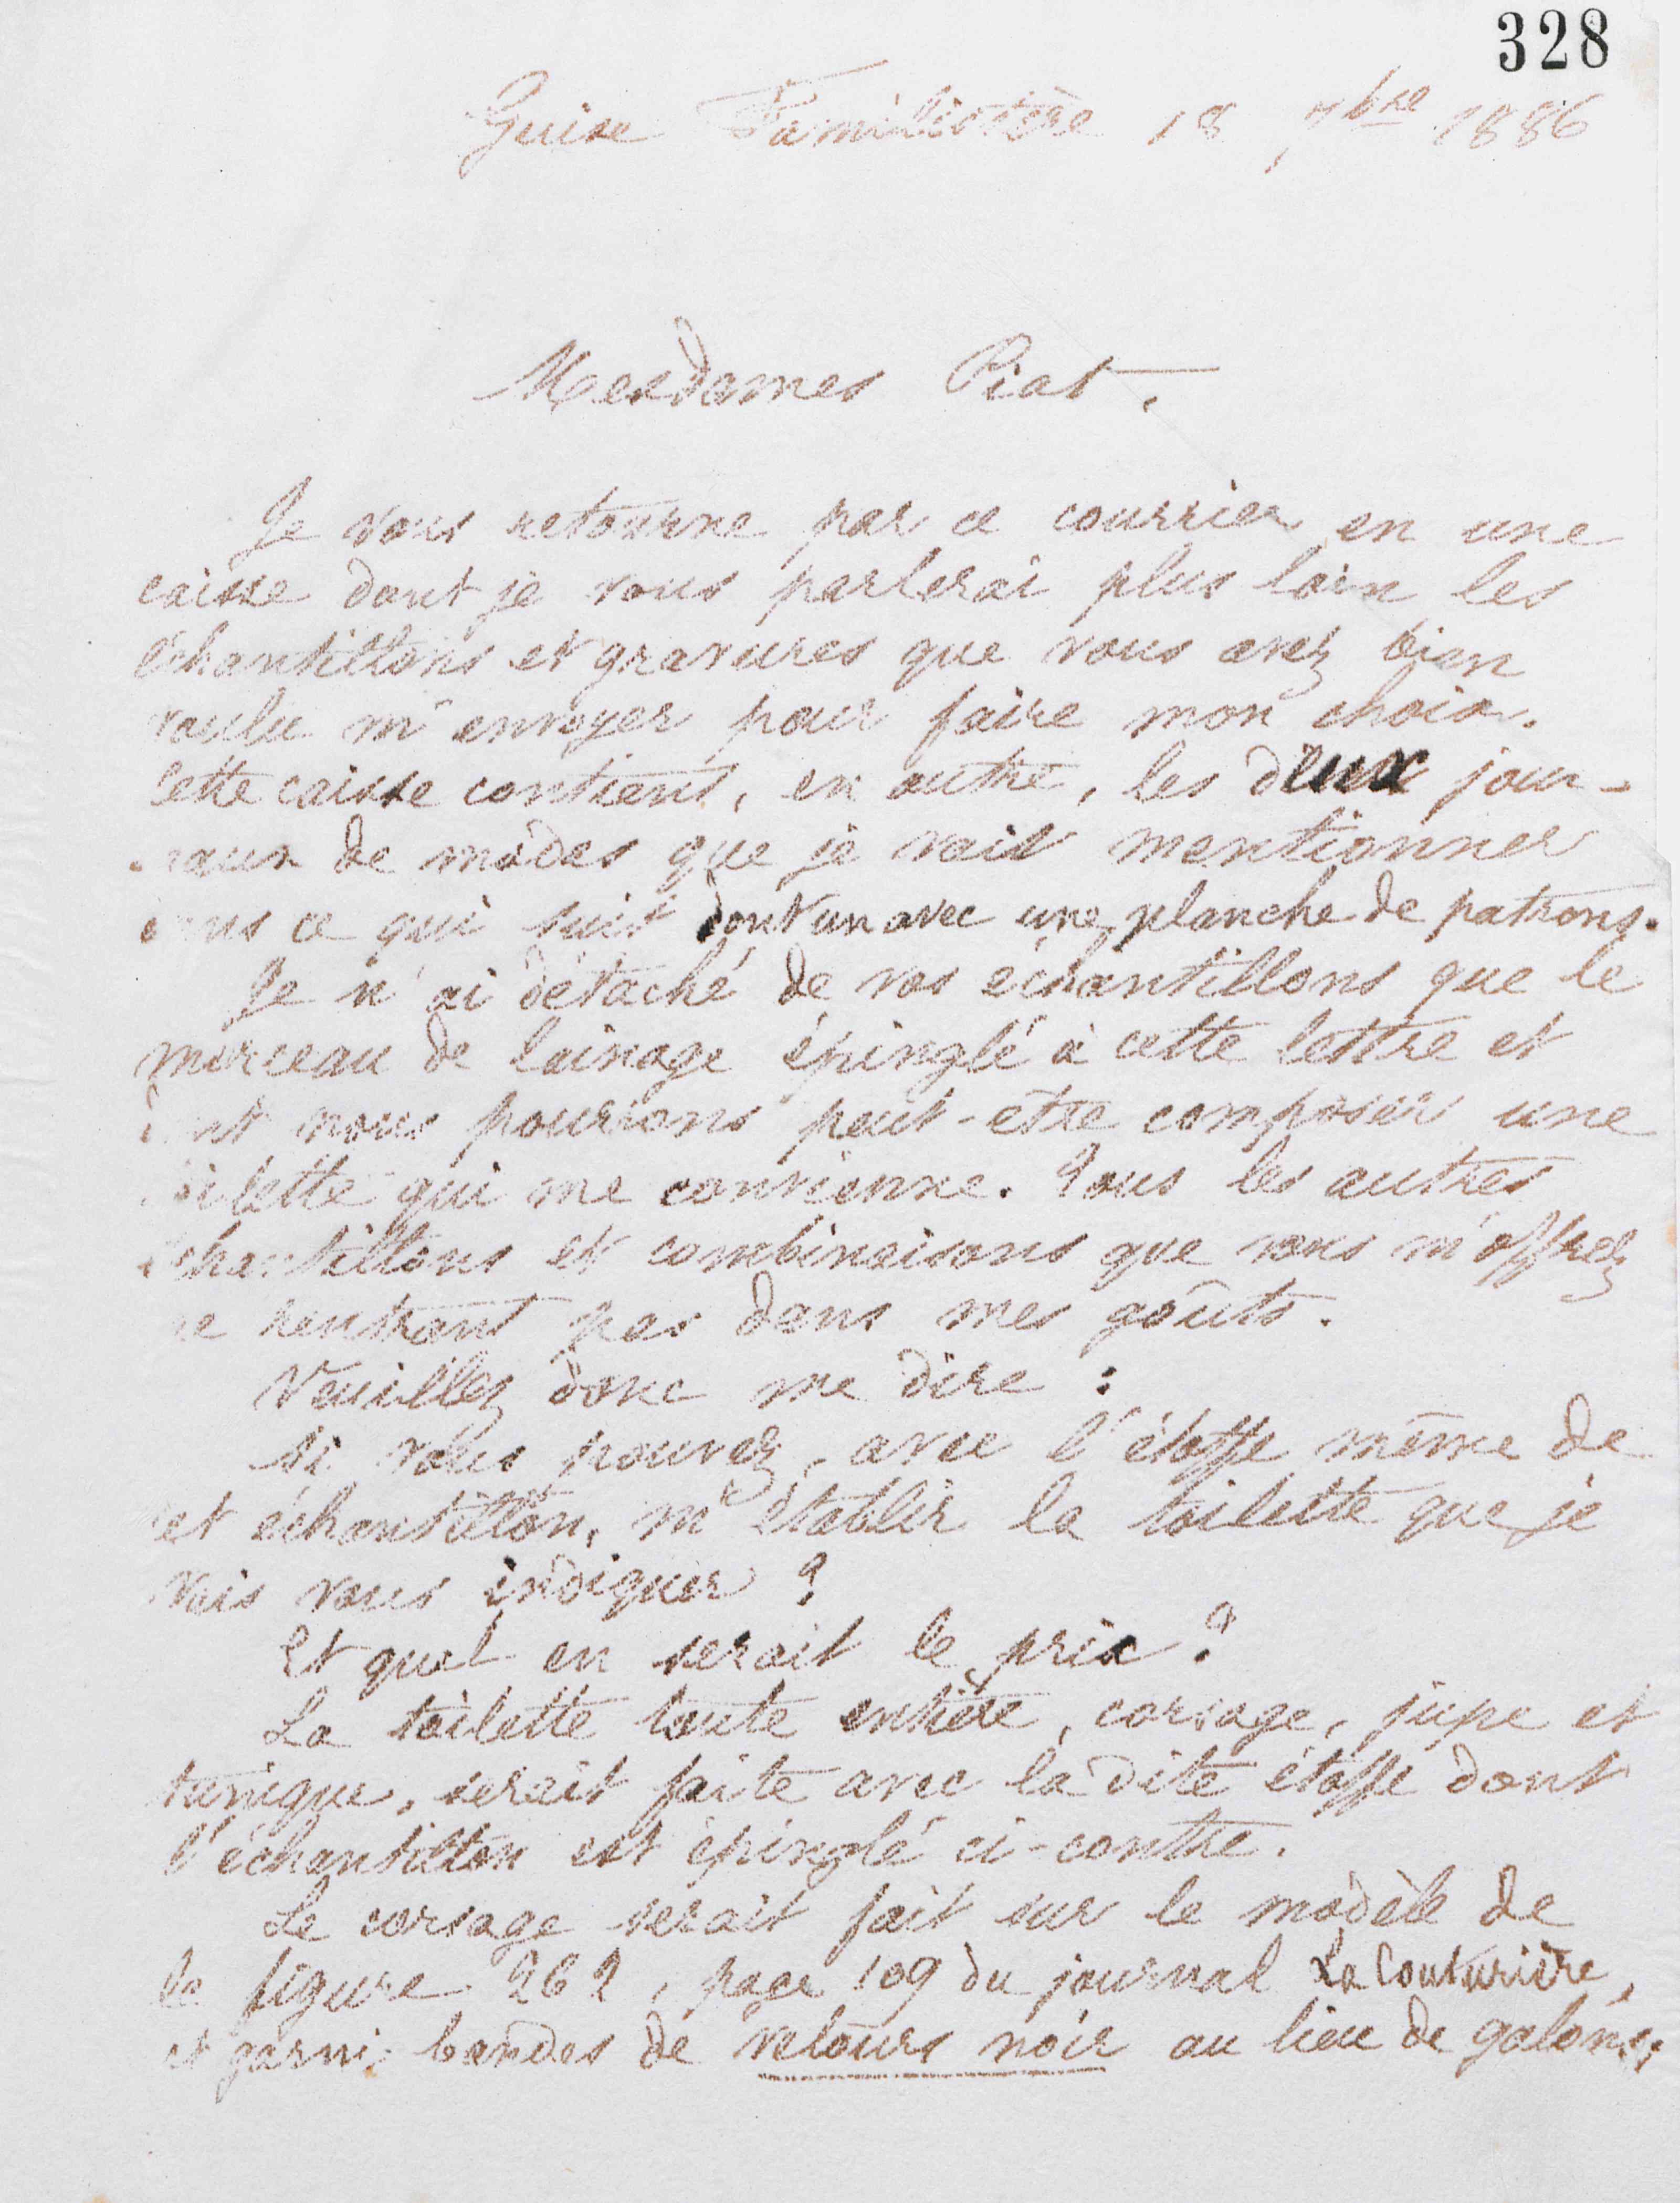 328
Guise Familistère 18 7bre 1886
Mesdames Piat,
Je vous retourne par ce courrier en une
caisse dont je vous parlerai plus loin les
échantillons et gravures que vous avez bien
voulu m'envoyer pour faire mon choix.
Cette caisse contient, en outre, les deux jour-
naux de modes que je vais mentionner
dans ce qui suit dont un avec une planche de patrons.
Je n'ai détaché de vos échantillons que le
morceau de lainage épinglé à cette lettre et
dont nous pourrons peut-être composer une
toilette qui me convienne. Tous les autres
échantillons et combinaisons que vous m'offrez
ne rentrant pas dans mes goûts.
Veuillez donc me dire :
Si vous pouvez, avec l'étoffe même de
cet échantillon, m'établir la toilette que je
vais vous indiquer ?
Et quel en serait le prix ?
La toilette toute entière, corsage, jupe et
tunique, serait faite avec la dite étoffe dont
l'échantillon est épinglé ci-contre.
Le corsage serait fait sur le modèle de
la figure 262, page 109 du journal La Couturière,
et garni bandes de velours noir au lieu de galons;